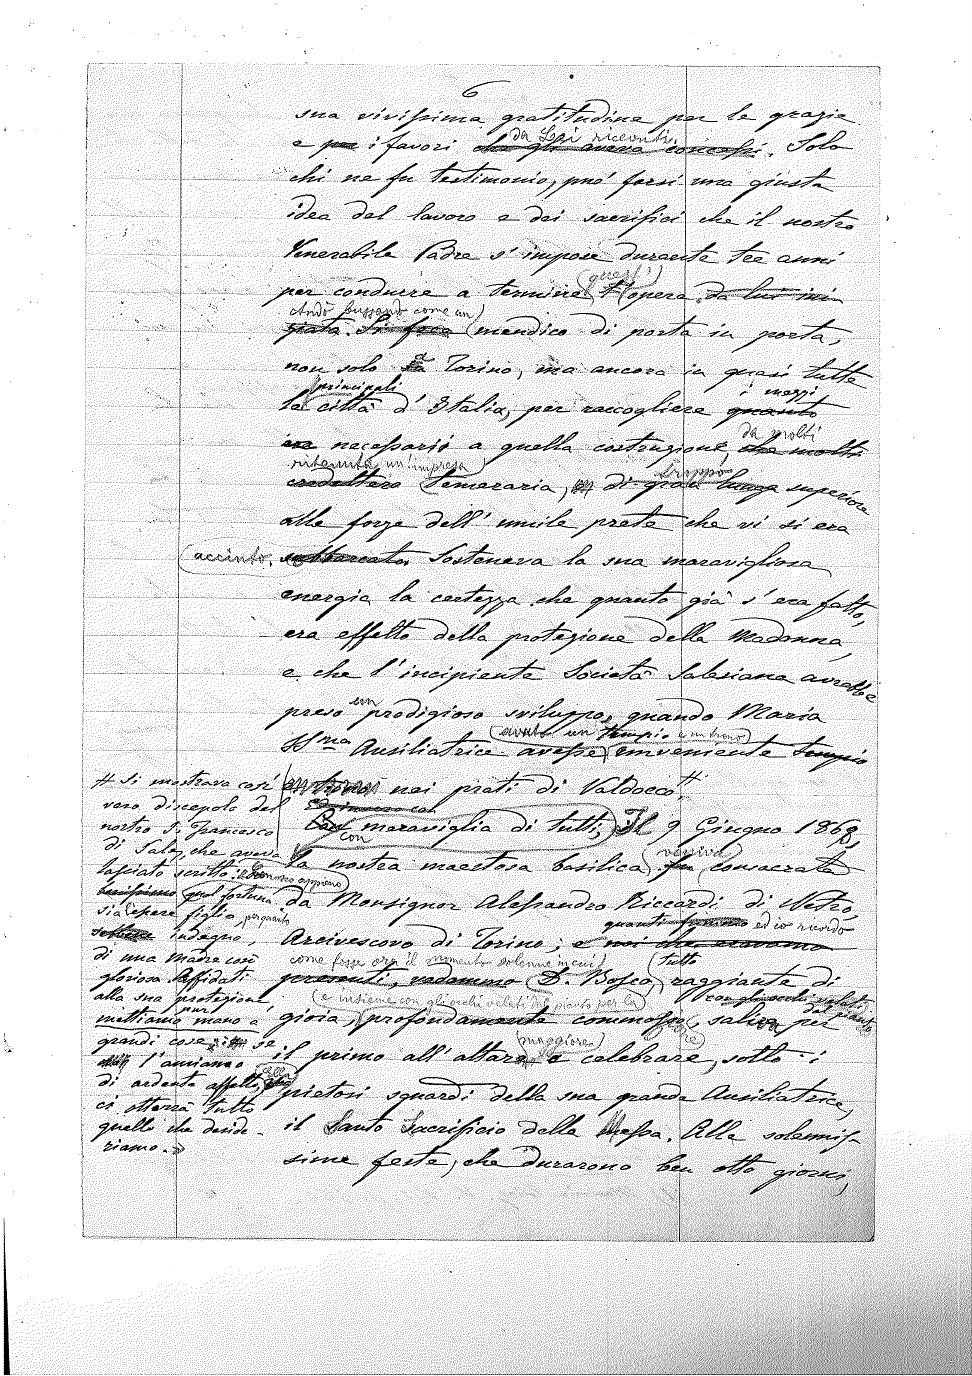 6
sua vivissima gratitudine per le grazie
da Lei ricevuti
e per i favori che gli aveva concessi. Solo
chi ne fu testimonio, può farsi una giusta
idea del lavoro e dei sacrifici che il nostro
Venerabile Padre s'impose durante tre anni
quest'
per condurre a termine l'opera da lui ini
andò bussando come un
ziata. Si fece mendico di porta in porta,
non solo a Torino, ma ancora in quasi tutte
principali i mezzi
le città d'Italia, per raccogliere quanto
da molti
era necessarii a quella costruzione, che molti
ritenuta un'impresa troppo
credettero temeraria, di gran lunga superiore
alle forze dell'umile prete che vi si era
accinto. sobbarcato. Sosteneva la sua maravigliosa
energia la certezza che quanto già s'era fatto,
era effetto della protezione della Madonna,
e che l'incipiente Società Salesiana avrebbe
un
preso prodigioso sviluppo, quando Maria
avuto un tempio e un trono
SS.ma Ausiliatrice avesse conveniente tempio
e trono nei prati di Valdocco.#
# Si mostrava così
vero discepolo del
nostro S. Francesco
di Sales, che aveva
lasciato scritto: « Conosco appieno
benissimo qual fortuna
sia l'essere figlio, per quanto
sebbene indegno,
di una madre così
gloriosa. Affidati
alla sua protezione
pur
mettiamo mano a
grandi cose: se
l'amiamo
di ardente affetto, Ella
ci otterrà tutto
quello che deside-
riamo. »
con
maraviglia di tutti, Il 9 Giugno 1868,
veniva
la nostra maestosa basilica fu consacrata
da Monsignor Alessandro Riccardi di Netro,
quanti fummo ed io ricordo
Arcivescovo di Torino; e noi che eravamo
come fosse ora il momento solenne in cui tutti
presenti, vedemmo D. Bosco raggiante di
e insieme con gli occhi velati dal pianto per la con gli occhi velati dal pianto
gioia, profondamente commosso, saliva per
maggiore
il primo all'altare a celebrare, sotto i
pietosi sguardi della sua grande Ausiliatrice,
il Santo Sacrificio della Messa. Alle solennis-
sime feste, che durarono ben otto giorni,